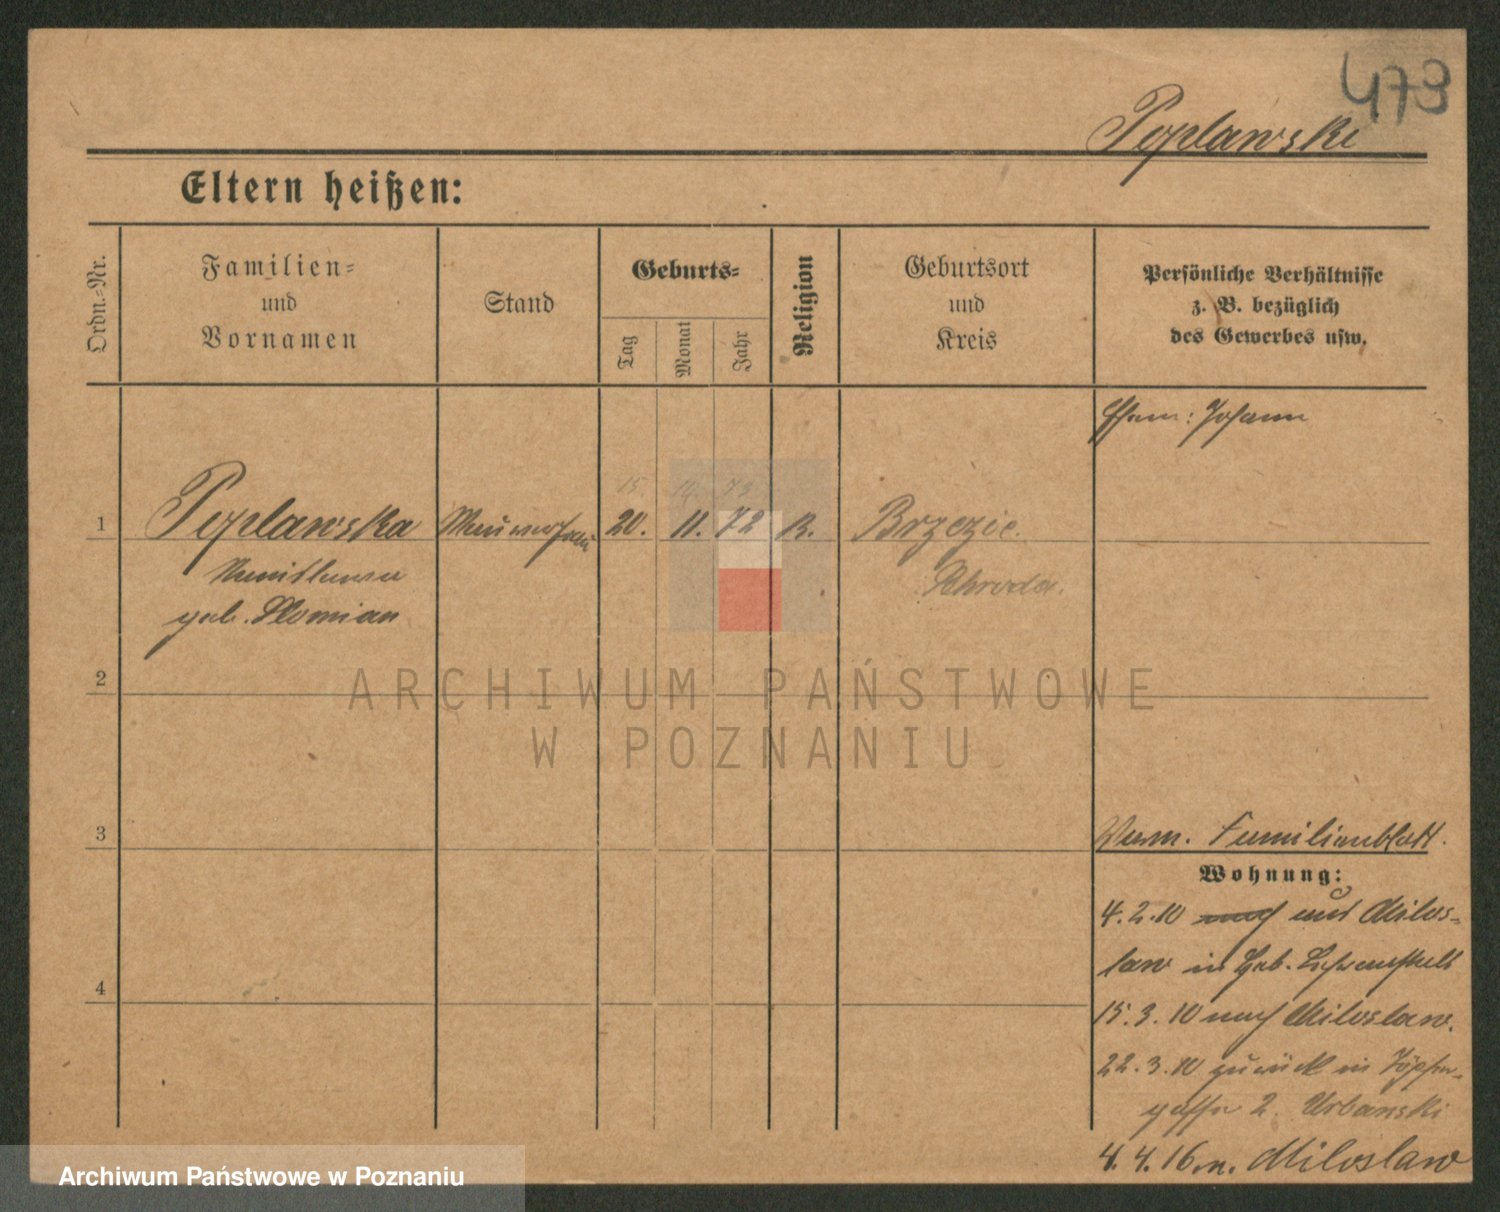 473
Poplawski
Eltern heißen:
Ordn.-Nr.
Familien-
und
Vornamen
Stand
Geburts-
Tag
Monat
Jahr
Religion
Geburtsort
und
Kreis
Persönliche Verhältnisse
z. B. bezüglich
des Gewerbes usw.
Ehem: Johann
15. 73
1 Poplawska Maurerfrau 20. 11. 72 R. Brzezie.
Schroda.
geb. Slomian
ARCHIWUM PAŃSTWOWE
W POZNANIU
2
3
Verm. Familienblatt.
Wohnung:
4.2.10 nach aus Milos-
law in
4
15.3.10 nach Miloslaw.
22.3.10 zurück in Töpfer-
gasse 2. Urbanski
4.4.16 n. Miloslaw
Archiwum Państwowe w Poznaniu